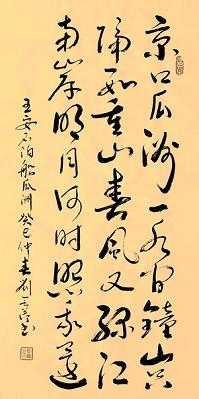 京口瓜洲一水間鐘山只
隔数重山春風又綠江
南岸明月何時照我還
王安石泊船瓜洲癸巳仲春劉書